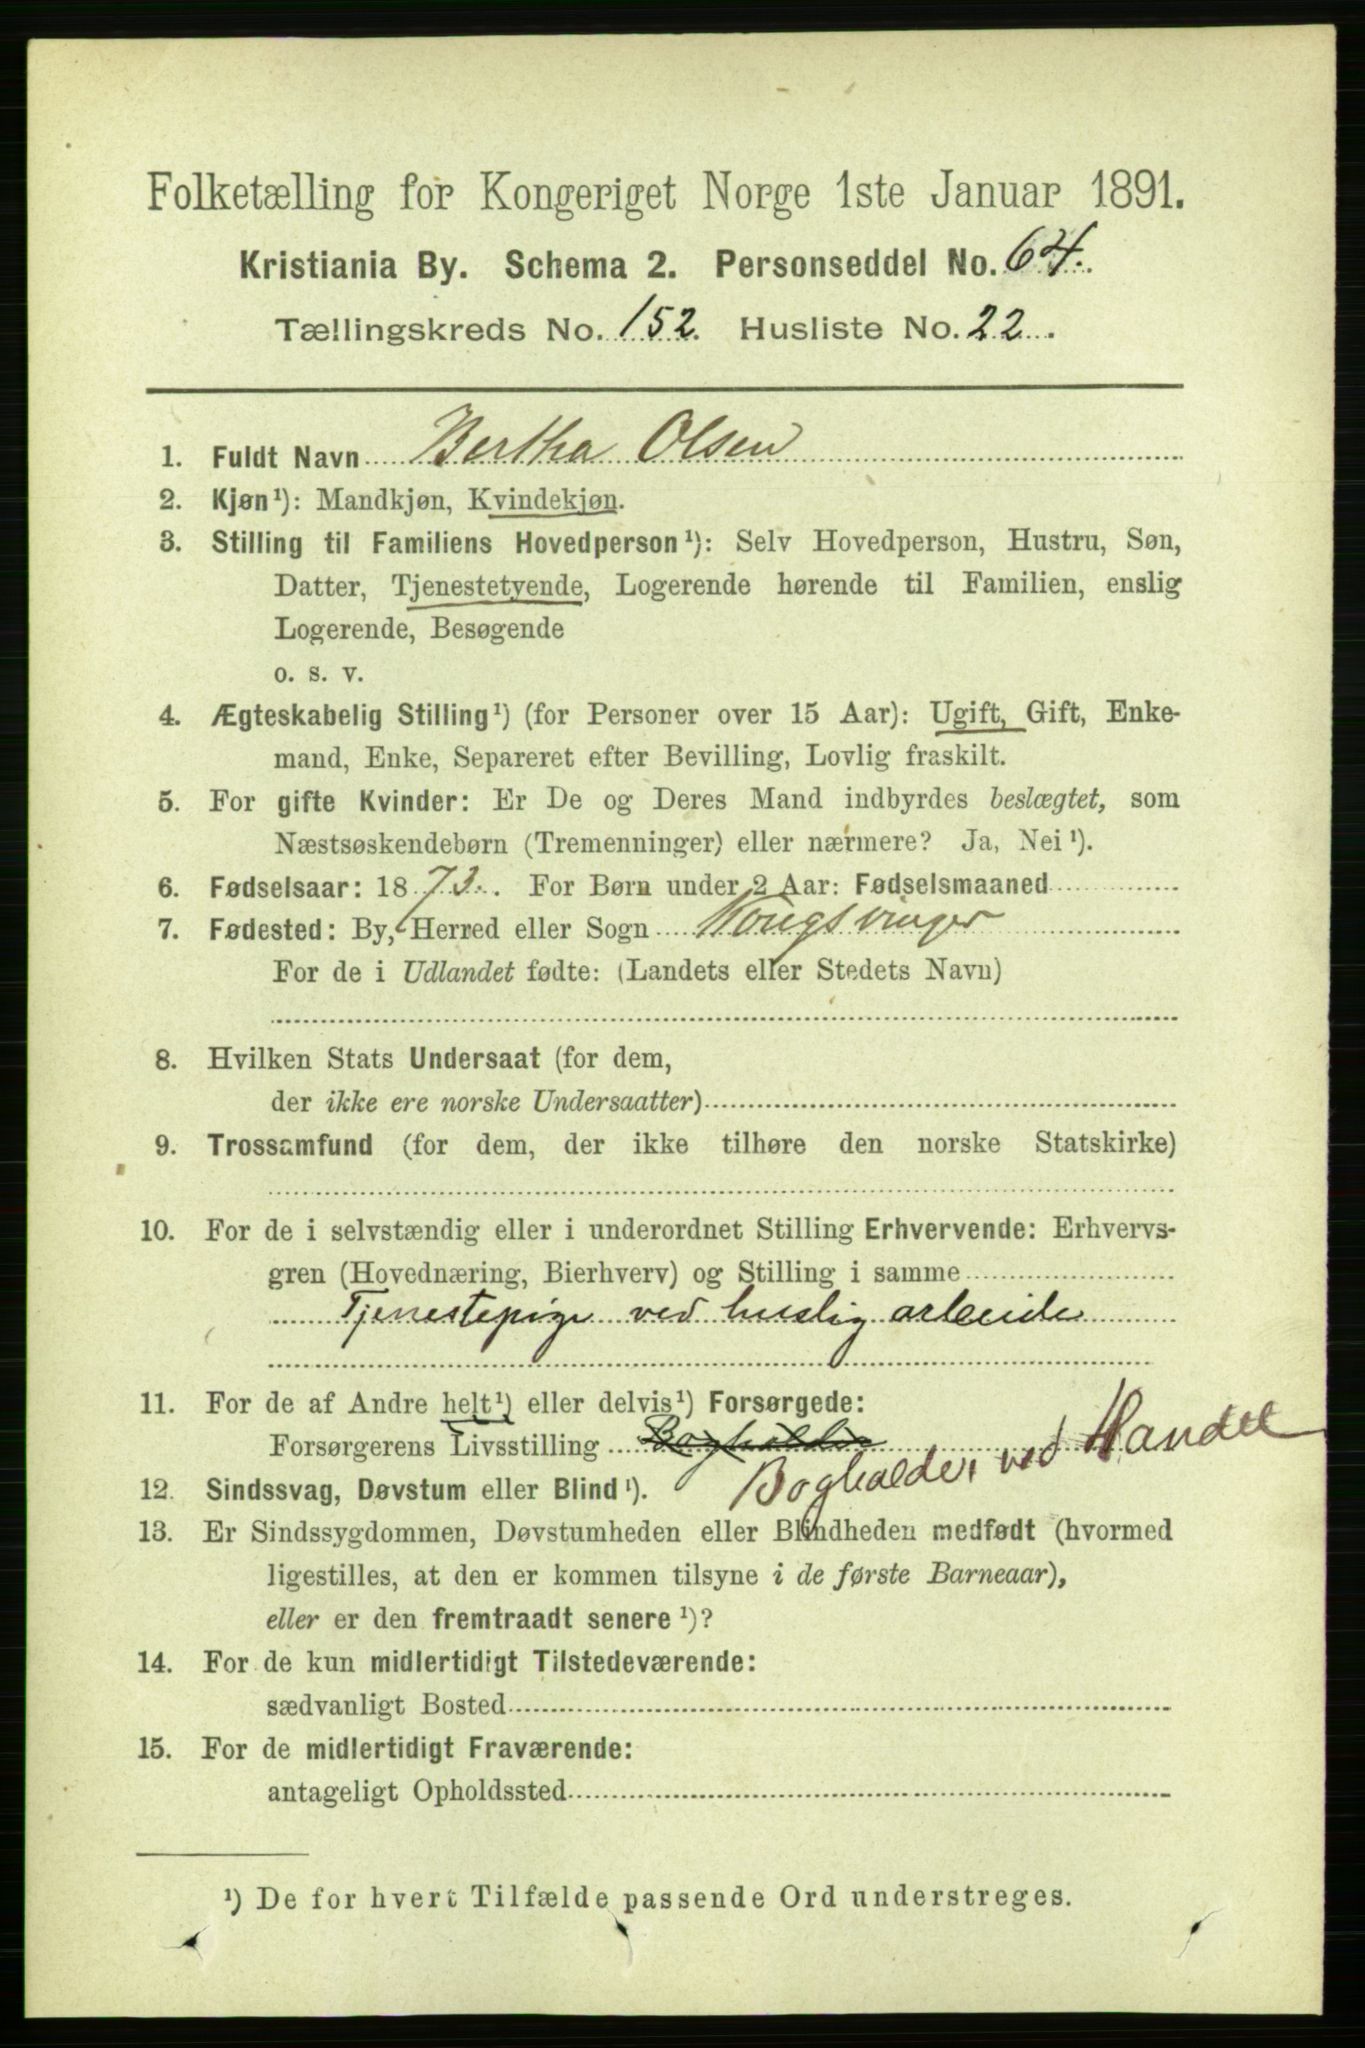 Folketælling for Kongeriget Norge 1ste Januar 1891.
Kristiania By. Schema 2. Personseddel No. 64.
Tællingskreds No. 152. Husliste No. 22.
1. Fuldt Navn Bertha Olsen
2. Kjøn¹): Mandkjøn, Kvindekjøn.
3. Stilling til Familiens Hovedperson¹): Selv Hovedperson, Hustru, Søn,
Datter, Tjenestetyende, Logerende hørende til Familien, enslig
Logerende, Besøgende
o. s. v.
4. Ægteskabelig Stilling¹) (for Personer over 15 Aar): Ugift, Gift, Enke-
mand, Enke, Separeret efter Bevilling, Lovlig fraskilt.
5. For gifte Kvinder: Er De og Deres Mand indbyrdes beslægtet, som
Næstsøskendebørn (Tremenninger) eller nærmere? Ja, Nei¹).
6. Fødselsaar: 1873. For Børn under 2 Aar: Fødselsmaaned
7. Fødested: By, Herred eller Sogn Kongsvinger
For de i Udlandet fødte: (Landets eller Stedets Navn)
8. Hvilken Stats Undersaat (for dem,
der ikke ere norske Undersaatter)
9. Trossamfund (for dem, der ikke tilhøre den norske Statskirke)
10. For de i selvstændig eller i underordnet Stilling Erhvervende: Erhvervs-
gren (Hovednæring, Bierhverv) og Stilling i samme
Tjenestepige ved huslig arbeide
11. For de af Andre helt¹) eller delvis¹) Forsørgede:
Forsørgerens Livsstilling Bogholder
Bogholder ved Handel
12. Sindssvag, Døvstum eller Blind¹).
13. Er Sindssygdommen, Døvstumheden eller Blindheden medfødt (hvormed
ligestilles, at den er kommen tilsyne i de første Barneaar),
eller er den fremtraadt senere¹)?
14. For de kun midlertidigt Tilstedeværende:
sædvanligt Bosted
15. For de midlertidigt Fraværende:
antageligt Opholdssted
¹) De for hvert Tilfælde passende Ord understreges.